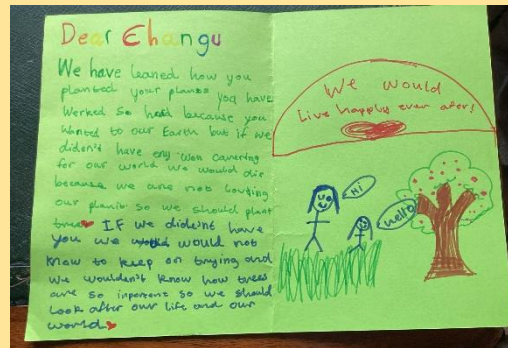 Dear Changu
We have leaned how you
planted your plants you have
Werked so hed because you
Wanted to our Earth but if we
diden't have eny won canering
for our world we would die
because we are not loving
our planit so we should plant
trees IF we dideint have
you we would would not
know to keep on trying and
we wouldn't know how trees
are so inportent so we should
Look after our life and our
world
We would
Live happley ever after!
Hi
hello